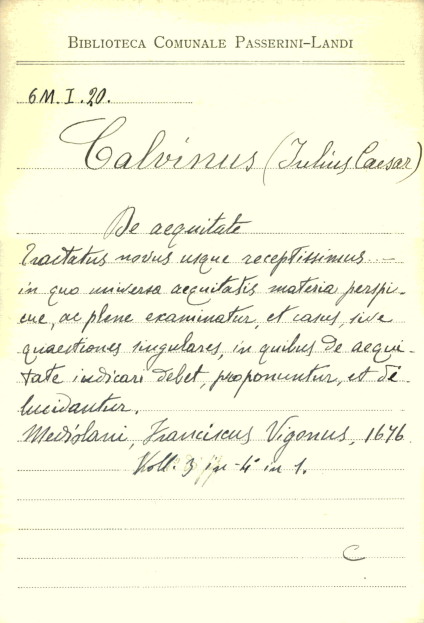 BIBLIOTECA COMUNALE PASSERINI-LANDI
6M. I. 20.
Calvinus (Julius Caesar)
De aequitate
Tractatus novus usque receptissimus ...
in quo universa aequitatis materia perspi-
cue, ac plene examinatur, et casus, sive
quaestiones singulares, in quibus de aequi-
tate iudicari debet, proponuntur, et di
lucidantur.
Mediolani, Franciscus Vigonus, 1676
Voll. 3 in-4° in 1.
C